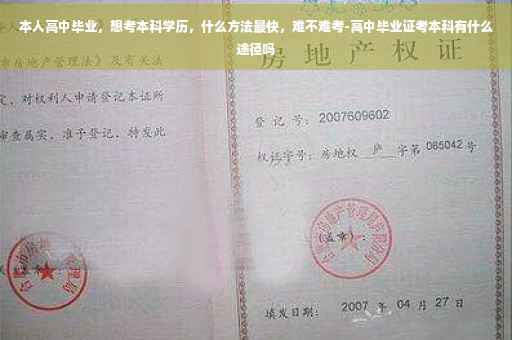 本人高中毕业，想考本科学历，什么方法最快，难不难考-高中毕业证考本科有什么
途径吗
房地产权证
市房地产管理法》及有关法
定，对权利人申请登记本证所
审查属实，准予登记，特发此
登记号：2007609602
权证字号：房地权 庐 字第 085042 号
(盖章)：
填发日期： 2007 年 04 月 27 日